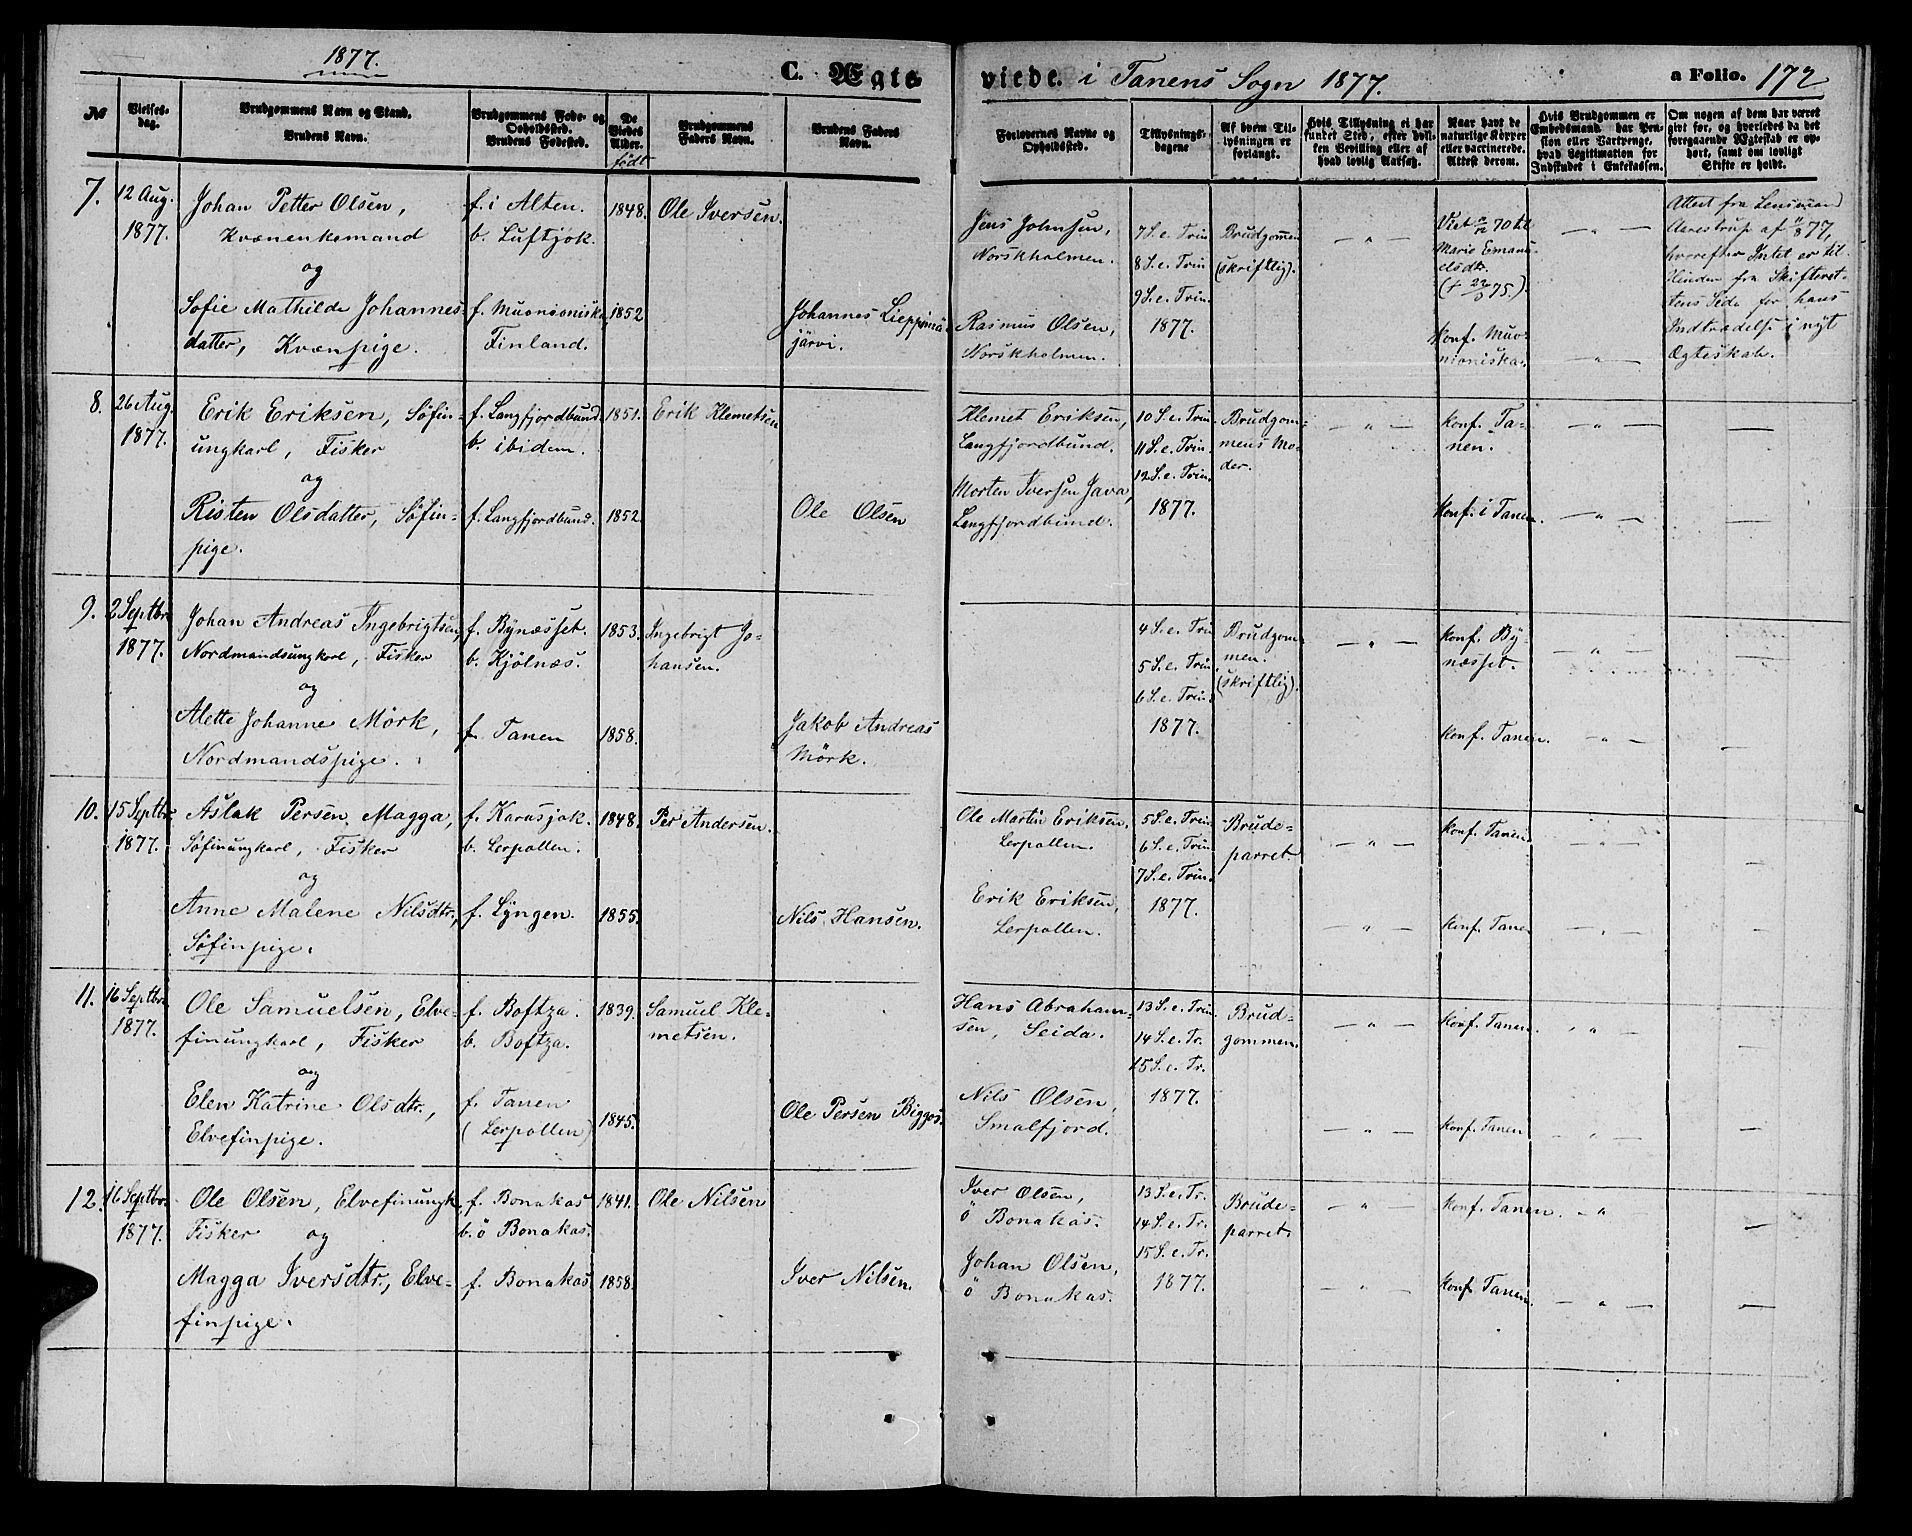 1877.
C. Ægte
№
Vielses-
dag.
Brudgommens Navn og Stand.
Brudens Navn.
Brudgommens Føde- og
Opholdssted.
Brudens Fødested.
De
Viedes
Alder.
født
Brudgommens
Faders Navn.
Brudens Faders
Navn.
7.
12 Aug.
1877.
Johan Petter Olsen,
Kvænenkemand
og
Sofie Mathilde Johannes-
datter, Kvænpige.
f. i Alten.
b. Luftjok.
f. Muonioniska
Finland.
1848.
1852
Ole Iversen.
Johannes Lieppinä-
järvi.
8.
26 Aug.
1877.
Erik Eriksen, Søfin-
ungkarl, Fisker
og
Risten Olsdatter, Søfin-
pige.
f. Langfjordbund.
b. ibidem.
f. Langfjordbund.
1851.
1852.
Erik Klemetsen
Ole Olsen
9.
2 Septbr.
1877.
Johan Andreas Ingebrigtsen,
Nordmandsungkarl, Fisker
og
Alette Johanne Mörk,
Nordmandspige.
f. Bynæsset.
b. Kjölnæs.
f. Tanen
1853.
1858.
Ingebrigt Jo-
hansen.
Jakob Andreas
Mörk.
10.
15 Septbr.
1877.
Aslak Persen Magga,
Søfinungkarl, Fisker
og
Anne Malene Nilsdtr.,
Søfinpige.
f. Karasjok.
b. Lerpollen.
f. Lyngen.
1848.
1855.
Per Andersen.
Nils Hansen.
11.
16 Septbr.
1877.
Ole Samuelsen, Elve-
finungkarl, Fisker
og
Elen Katrine Olsdtr.,
Elvefinpige.
f. Boftza.
b. Boftza.
f. Tanen
(Lerpollen)
1839.
1845.
Samuel Kle-
metsen.
Ole Persen Biggos.
12.
16 Septbr.
1877.
Ole Olsen, Elvefinungk.
Fisker og
Magga Iversdtr., Elve-
finpige.
f. Bonakas
b. ö Bonakas.
f. Bonakas
1841.
1858.
Ole Nilsen
Iver Nilsen.
viede. i Tanens Sogn 1877.
a Folio. 172
Forlovernes Navne og
Opholdssted.
Tillysnings-
dagene
Af hvem Til-
lysningen er
forlangt.
Hvis Tillysning ei har
fundet Sted, efter hvil-
ken Bevilling eller af
hvad lovlig Aarsag.
Naar havt de
naturlige Kopper
eller vaccinerede.
Attest derom.
Hvis Brudgommen er
Embedsmand har Pen-
sion eller Vartpenge,
hvad Legitimation for
Indskudet i Enkekassen.
Om nogen af dem har været
gift før, og hvorledes da det
foregaaende Ægteskab er op-
hørt, samt om lovligt
Skifte er holdt.
Jens Johnsen,
Norskholmen.
Rasmus Olsen,
Norskholmen.
7 S. e. Trin
8 S. e. Trin
9 S. e. Trin.
1877.
Brudgommen
(skriftlig).
— " —
Viet 70 til
Marie Emanu-
elsdtr.
konf. Muo-
nioniska.
— " —
— " —
Attest fra Lensmand
Aarestrup af 77,
hvorefter Intet er til
Hinder fra Skifteret-
tens Side for hans
Indtrædelse i nyt
Ægteskab.
Klemet Eriksen,
Langfjordbund.
Morten Iversen Java,
Langfjordbund.
10 S. e. Trin.
11 S. e. Trin.
12 S. e. Trin.
1877.
Brudgom-
mens Mo-
der.
— " —
konf. Ta-
nen.
Konf. i Tanen.
— " —
— " —
—
—
4 S. e. Tri
5 S. e. Trin.
6 S. e. Trin.
1877.
Brudgom-
men.
(skriftlig).
— " —
konf. By-
næsset.
konf. Tanen.
— " —
— " —
—
—
Ole Martin Eriksen,
Lerpollen.
Erik Eriksen,
Lerpollen.
5 S. e. Trin
6 S. e. Trin
7 S. e. Trin.
1877.
Brude-
parret.
— " —
— " —
konf. Tanen.
konf. Tanen
— " —
— " —
—
—
Hans Abraham-
sen, Seida.
Nils Olsen,
Smalfjord.
13 S. e. Trin.
14 S. e. Tr.
15 S. e. Tr.
1877.
Brud-
gommen.
— " —
— " —
konf. Tanen.
konf. Tanen
— " —
— " —
—
—
Iver Olsen,
ö Bonakas.
Johan Olsen,
ö Bonakas.
13 S. e. Tr.
14 S. e. Tr.
15 S. e. Tr.
1877.
Brude-
parret.
— " —
— " —
konf. Tanen.
konf. Tanen.
— " —
— " —
—
—